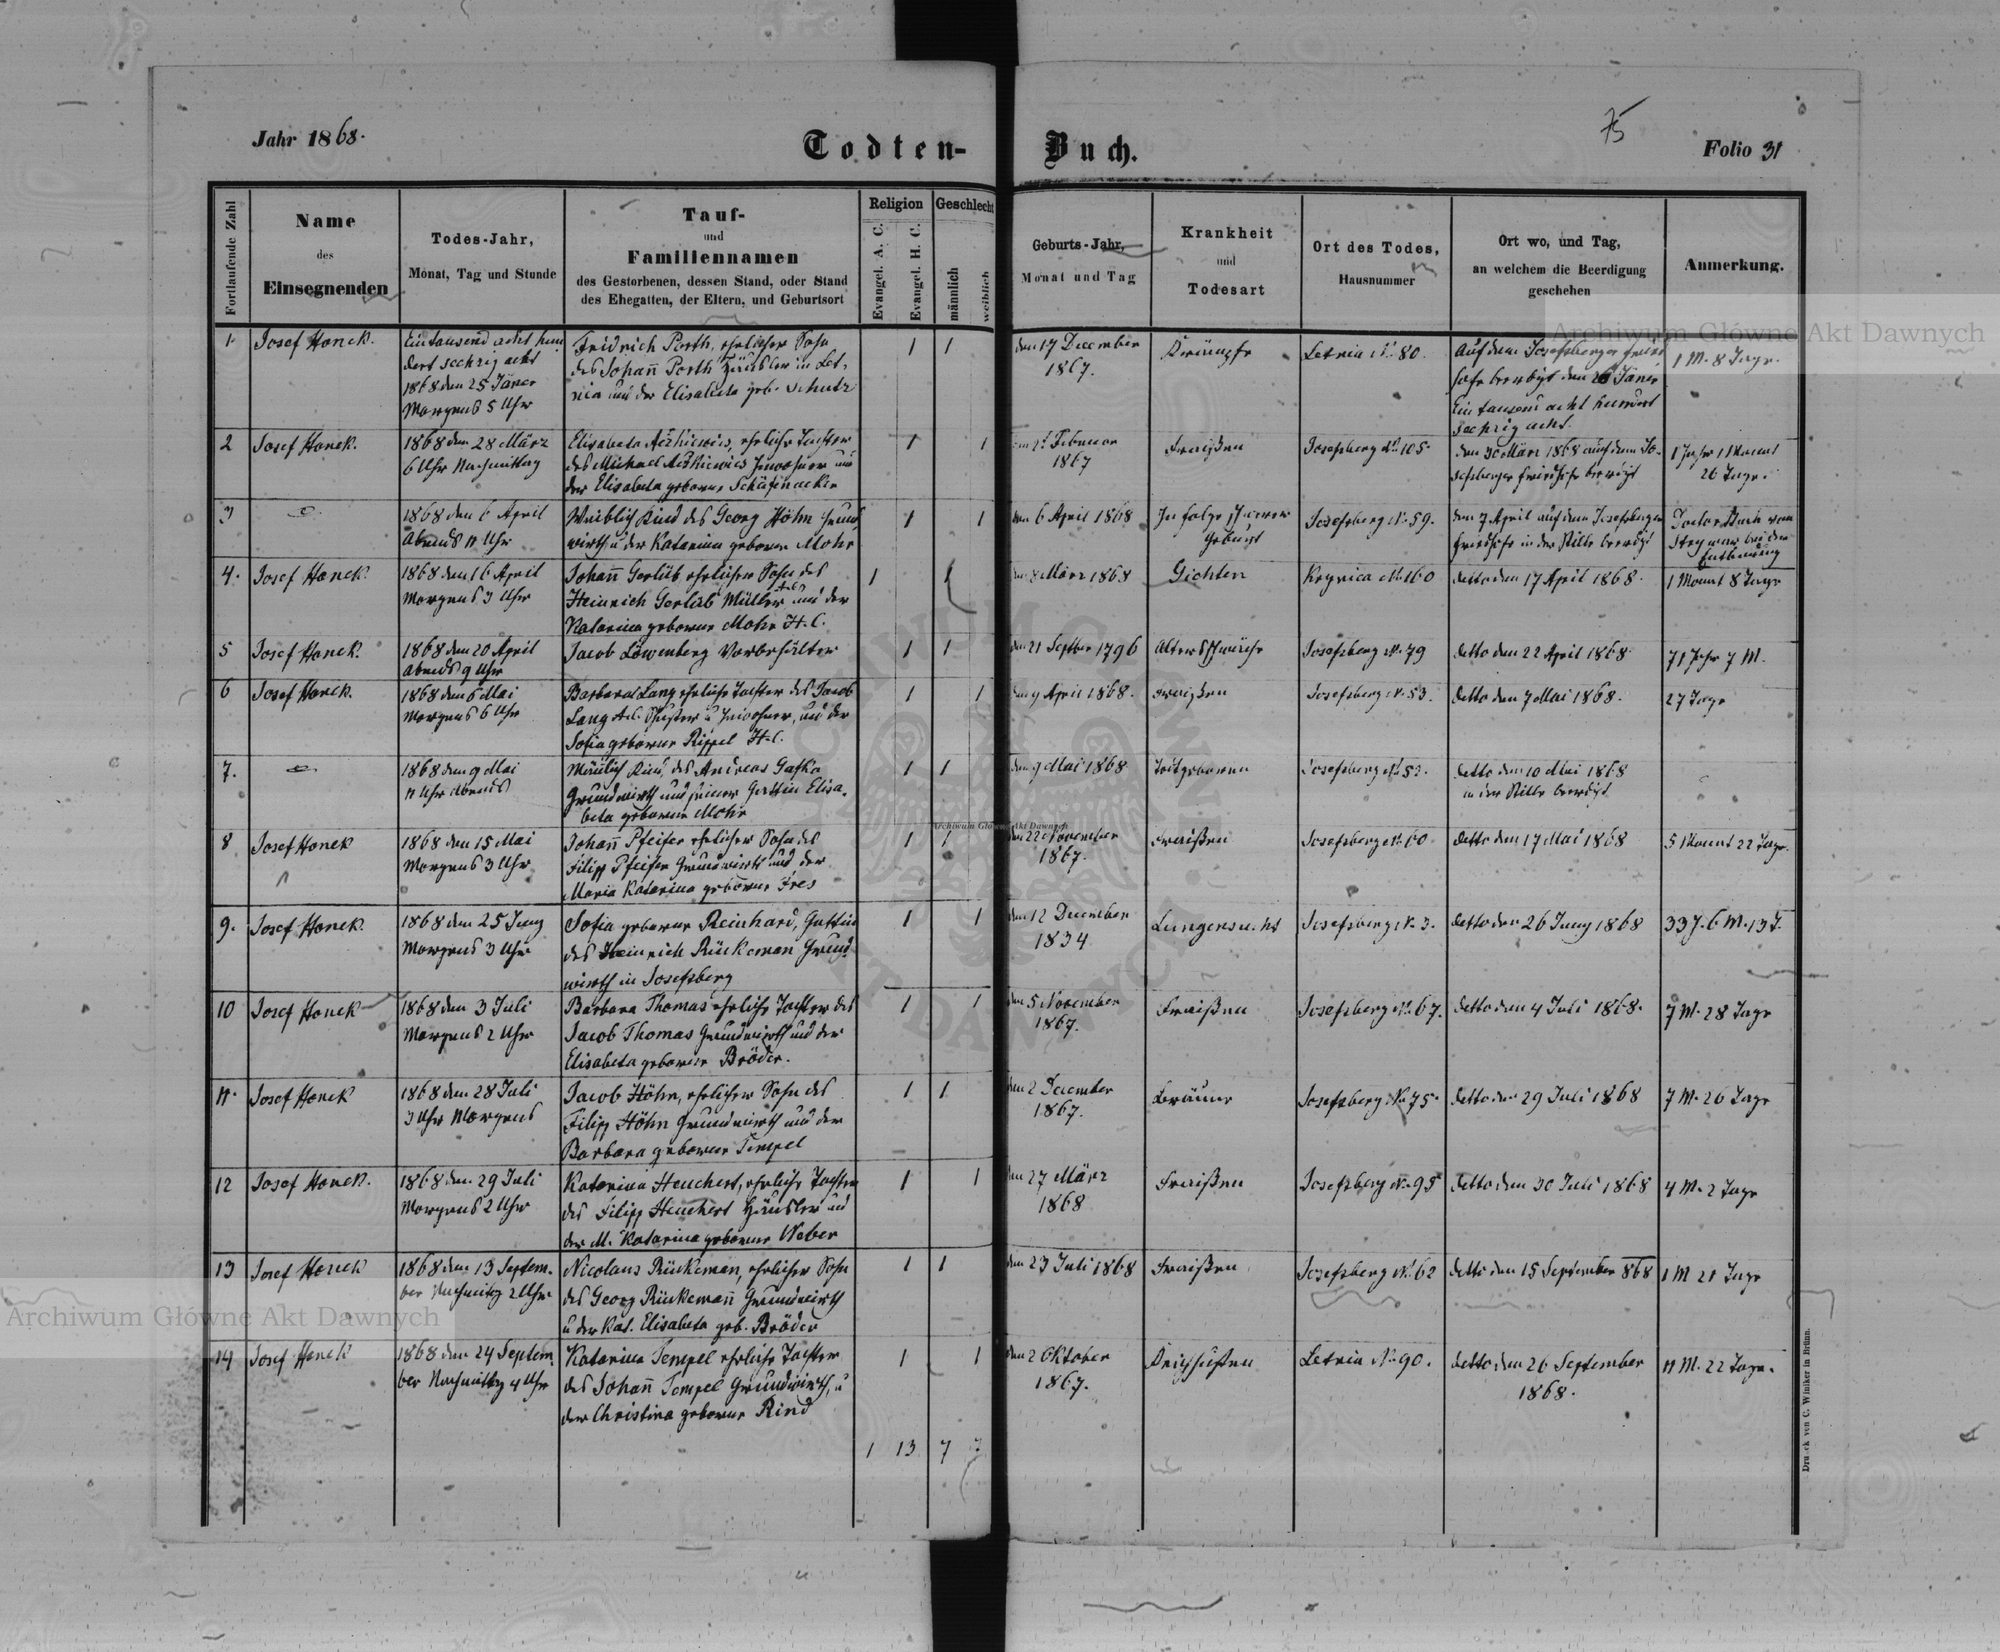 75
Jahr 1868.
Todten-Buch.
Folio 31
Fortlaufende Zahl
Name
des
Einsegnenden
Todes-Jahr,
Monat, Tag und Stunde
Tauf-
und
Familiennamen
des Gestorbenen, dessen Stand, oder Stand
des Ehegatten, der Eltern, und Geburtsort
Religion
Evangel. A. C.
Evangel. H. C.
Geschlecht
männlich
weiblich
Geburts-Jahr,
Monat und Tag
Krankheit
und
Todesart
Ort des Todes,
Hausnummer
Ort wo, und Tag,
an welchem die Beerdigung
geschehen
Anmerkung.
1 Josef Honek.
Eintausend acht hun
dert sechzig acht
1868 den 25 Jäner
Morgens 5 Uhr
Fridrich Porth, ehelicher Sohn
des Johann Porth Häusler in Let-
nia und der Elisabeta geb. Schutz
1 1
den 17 December
1867.
Krämpfe
Letnia No 80.
Auf dem Josefsberger Fried
hofe beerdigt den 26 Jäner
Ein tausend acht hundert
sechzig acht.
1 M. 8 Tage.
2 Josef Honek.
1868 den 28 März
6 Uhr Nachmittag
Elisabeta eheliche Tochter
des Michael Inwohner und
der Elisabeta geborene Schäfenacker
1 1
Februar
1867
Fraißen
Josefsberg No 105.
den 30 März 1868 auf dem Jo-
sefsberger Friedhofe beerdigt
1 Jahr 1 Monat
26 Tage.
3
1868 den 6 April
Abends 11 Uhr
Weiblich Kind des Georg Höhn Grund
wirth u der Katarina geborene Mohr
1 1
den 6 April 1868
In folge schwerer
Geburt
Josefsberg No 59.
den 7 April auf dem Josefsberger
Friedhofe in der Stille beerdigt
von
Stry war bei der
Entbindung
4. Josef Honek.
1868 den 16 April
Morgens 3 Uhr
Johann Gerlieb ehelicher Sohn des
Heinrich Gerlieb Müller A.C. und der
Katarina geborene Mohr H.C.
1 1
März 1868
Gichten
Krynica No 160
detto den 17 April 1868.
1 Monat 8 Tage
5 Josef Honek.
1868 den 20 April
Abends 9 Uhr
Jacob Löwenberg Vorbehälter
1 1
den 21 Septber 1796
Altersschwäche
Josefsberg No 79
detto den 22 April 1868.
71 Jahr 7 M.
6 Josef Honek.
1868 den 6 Mai
Morgens 6 Uhr
Barbara Lang eheliche Tochter des Jacob
Lang A.C. Schuster u Inwohner, und der
Sofia geborene Rippel H.C.
1 1
den 9 April 1868.
Fraißen
Josefsberg No 53.
detto den 7 Mai 1868.
27 Tage
7.
1868 den 9 Mai
11 Uhr Abends
Mänlich Kind, des Andreas Gafka
Grundwirth und seiner Gattin Elisa-
beta geborene Mohr
1 1
den 9 Mai 1868
Todtgeboren
Josefsberg No 52.
detto den 10 Mai 1868
in der Stille beerdigt
8 Josef Honek
1868 den 15 Mai
Morgens 3 Uhr
Johann Pfeifer ehelicher Sohn des
Filipp Pfeifer Grundwirth und der
Maria Katarina geborene Fres
1 1
den 22 November
1867.
Fraißen
Josefsberg No 60.
detto den 17 Mai 1868
5 Monat 22 Tage
9. Josef Honek.
1868 den 25 Juny
Morgens 3 Uhr
Sofia geborene Reinhard, Gattin
des Heinrich Rückeman Grund
wirth in Josefsberg
1 1
den 12 December
1834
Lungensucht
Josefsberg No 3.
detto den 26 Juny 1868
33 J. 6 M. 13 T.
10 Josef Honek
1868 den 3 Juli
Morgens 2 Uhr
Barbara Thomas eheliche Tochter des
Jacob Thomas Grundwirth und der
Elisabeta geborene Bröder.
1 1
den 5 November
1867.
Fraißen
Josefsberg No 67.
detto den 4 Juli 1868.
7 M. 28 Tage
11. Josef Honek
1868 den 28 Juli
3 Uhr Morgens
Jacob Höhn, ehelicher Sohn des
Filipp Höhn Grundwirth und der
Barbara geborene Tempel
1 1
den 2 December
1867.
Bräune
Josefsberg No 75.
detto den 29 Juli 1868
7 M. 26 Tage
12 Josef Honek.
1868 den 29 Juli
Morgens 2 Uhr
Katarina Heuchert, eheliche Tochter
des Filipp Heuchert Häusler und
der M. Katarina geborene Weber
1 1
den 27 März
1868
Fraißen
Josefsberg No 95
detto den 30 Juli 1868
4 M. 2 Tage
13 Josef Honek
1868 den 13 Septem-
ber Nachmittag 2 Uhr
Nicolaus Rückeman, ehelicher Sohn
des Georg Rückemann Grundwirth
u der Kat. Elisabeta geb. Bröder
1 1
den 23 Juli 1868
Fraißen
Josefsberg No 62
detto den 15 September 868
1 M 21 Tage
14 Josef Honek
1868 den 24 Septem-
ber Nachmittag 4 Uhr
Katarina Tempel eheliche Tochter
des Johann Tempel Grundwirth, u
der Christina geborene Rind
1 1
den 2 Oktober
1867.
Keichhusten
Letnia No 90.
detto den 26 September
1868.
11 M. 22 Tage.
1 13 7 7
Druck von C. Winiker in Brünn.
Archiwum Główne Akt Dawnych
Archiwum Główne Akt Dawnych
Archiwum Główne Akt Dawnych